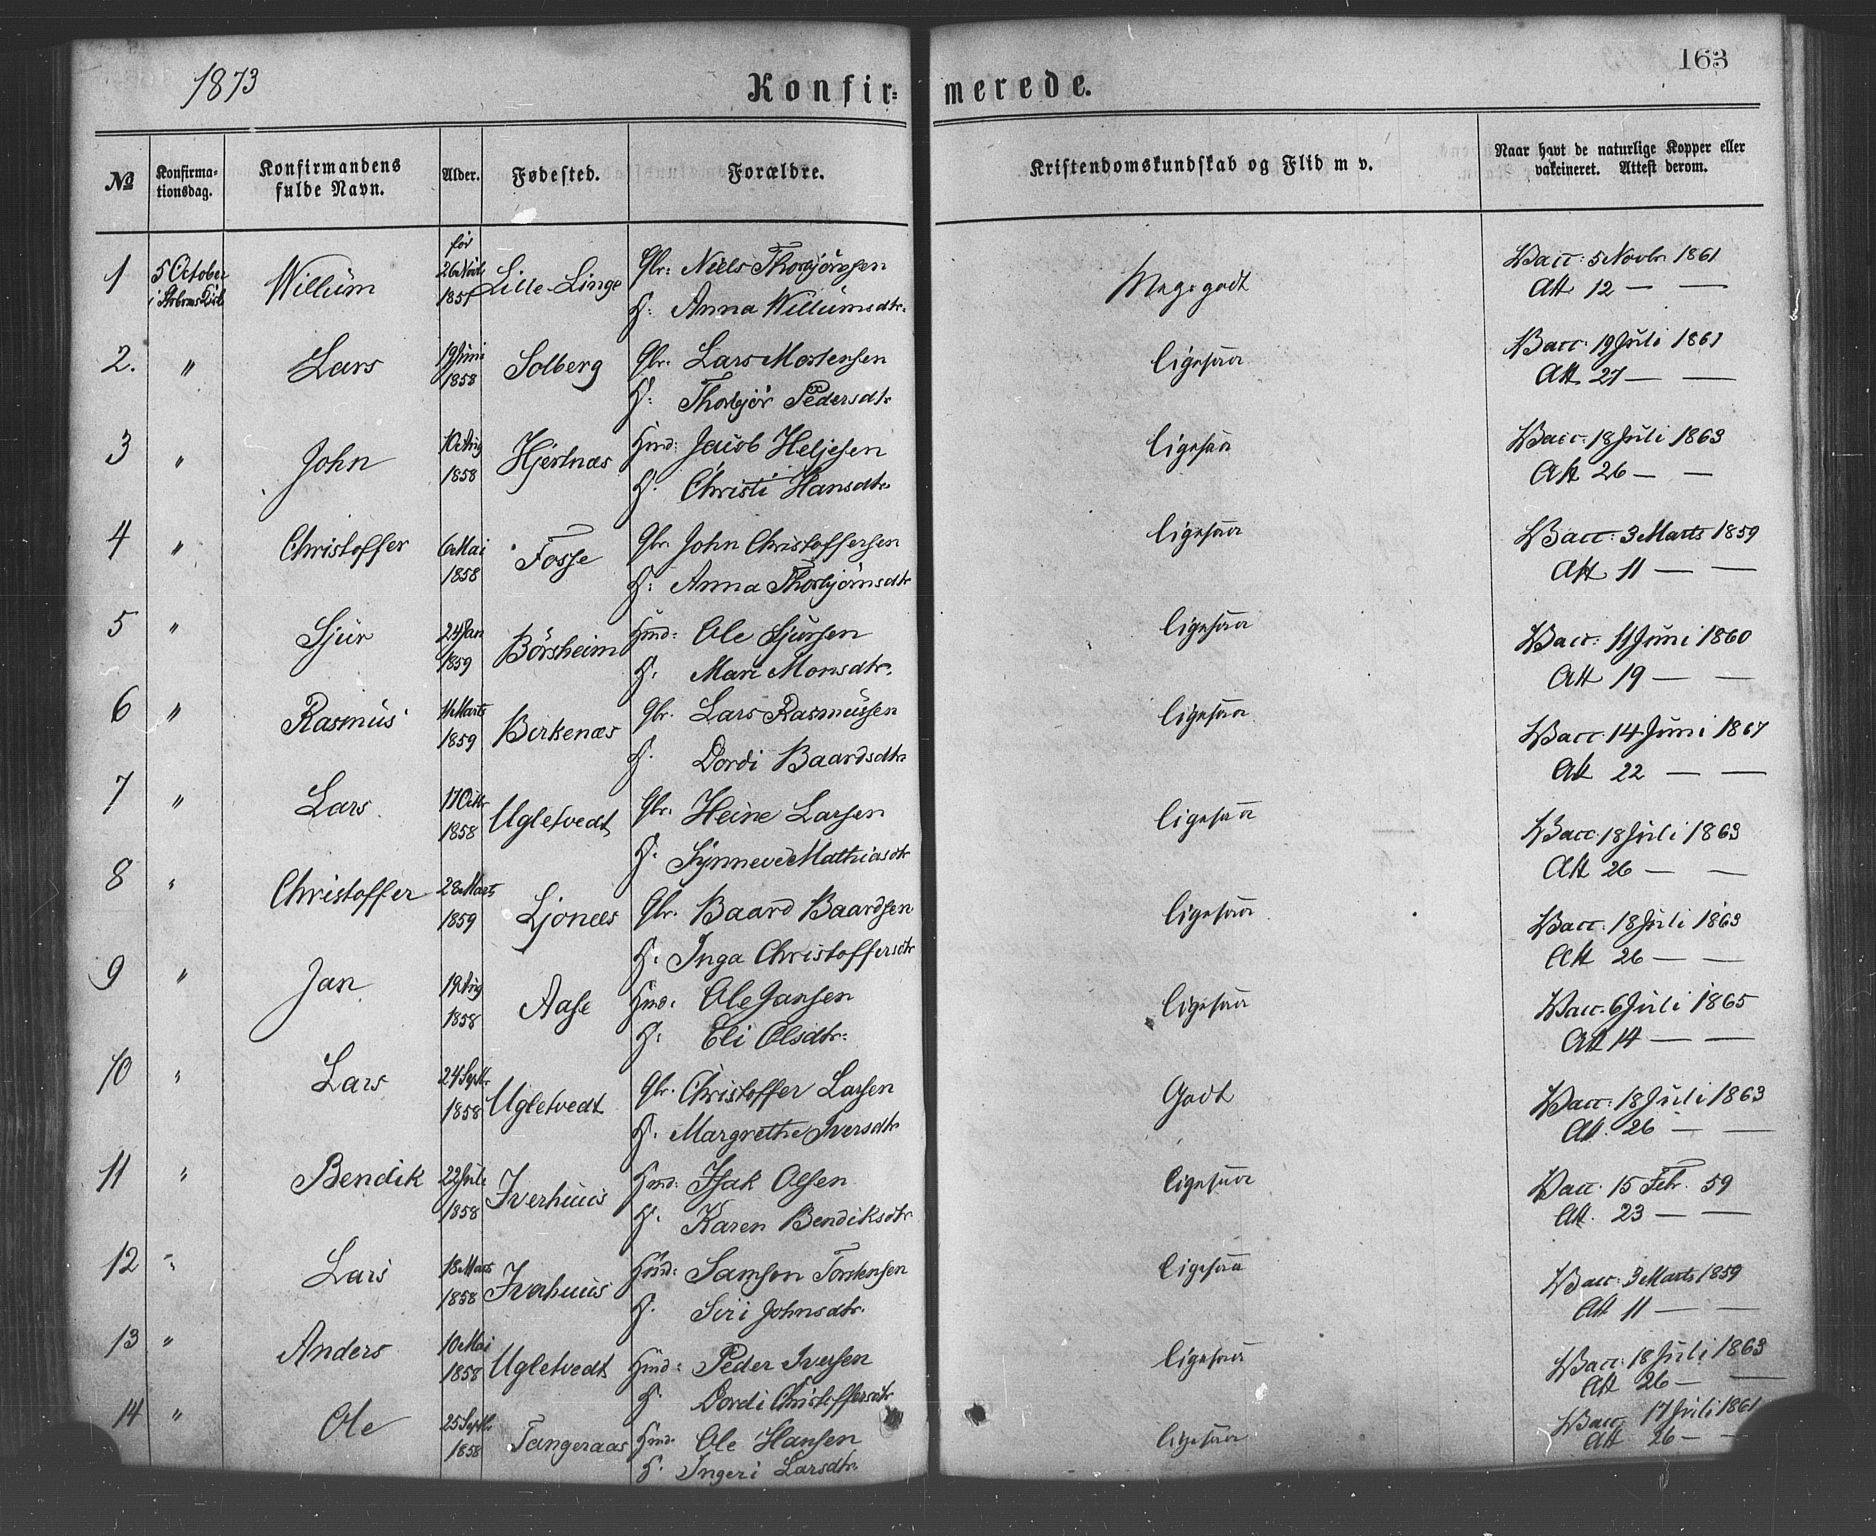 1873
Konfirmerede.
163
No
Konfirmationsdag.
Konfirmandens fulde Navn.
Alder.
Fødested.
Forældre.
Kristendomskundskab og Flid m v.
Naar havt de naturlige Kopper eller vakcineret. Attest derom.
1 5 October Willum før 26 1857 Lille-Linge Gbr: Niels Thorbjørnsen Mege godt Vacc: 5 Novbr 1861
H: Anna Willumsdtr. Att 12 — —
2. " Lars 19 Juni 1858 Solberg Gbr. Lars Mortensen ligesaa Vacc: 19 Juli 1861
H: Thorbjør Pedersdtr Att 27 — —
3 " John 10 Aug 1858 Hjertnæs Hmd: Jacob Heljesen ligesaa Vacc: 18 Juli 1863
H. Christi Hansdtr. Att 26 — —
4 " Christoffer 6 Mai 1858 Fosse Gbr John Christoffersen ligesaa Vacc: 3 Marts 1859
H: Anna Thorbjørnsdtr Att 11 — —
5 " Sjur 24 Jan 1859 Börsheim Hmd: Ole Sjursen ligesaa Vacc: 11 Juni 1860
H. Mari Monsdtr. Att 19 — —
6 " Rasmus 11 Marts 1859 Birkenæs Gbr. Lars Rasmussen ligesaa Vacc 14 Juni 1867
H. Dordi Baardsdtr Att 22 — —
7 " Lars 17 Octbr 1858 Ugletvedt Gbr. Heine Larsen ligesaa Vacc: 18 Juli 1863
H. Synneve Mathiasdtr Att 26 — —
8 " Christoffer 28 Marts 1859 Ljonæs Gbr. Baard Baardsen ligesaa Vacc: 18 Juli 1863
H: Inga Christoffersdtr Att 26 — —
9 " Jan 19 Aug 1858 Aase Hmd: Ole Jansen ligesaa Vacc. 6 Juli 1865
H: Eli Olsdtr. Att 14 — —
10 " Lars 24 Septbr 1858 Ugletvedt Gbr. Christoffer Larsen Godt Vacc: 18 Juli 1863
H. Margrethe Iversdtr Att. 26 — —
11 " Bendik 22 Juli 1858 Iverhuus Hmd: Isak Olsen ligesaa Vacc. 15 Febr. 59
H. Karen Bendiksdtr Att. 23 — —
12 " Lars 18 Marts 1858 Iverhuus Hmd: Samson Torstensen ligesaa Vacc: 3 Marts 1859
H. Siri Johnsdtr. Att 11 — —
13 " Anders 10 Mai 1858 Ugletvedt Hmd: Peder Iversen ligesaa Vacc: 18 Juli 1863
H. Dordi Christoffersdtr Att 26 — —
14 " Ole 25 Septbr. 1858 Tangeraas Hmd. Ole Hansen ligesaa Vacc 17 Juli 1861
H. Ingeri Larsdtr. Att 26 — —